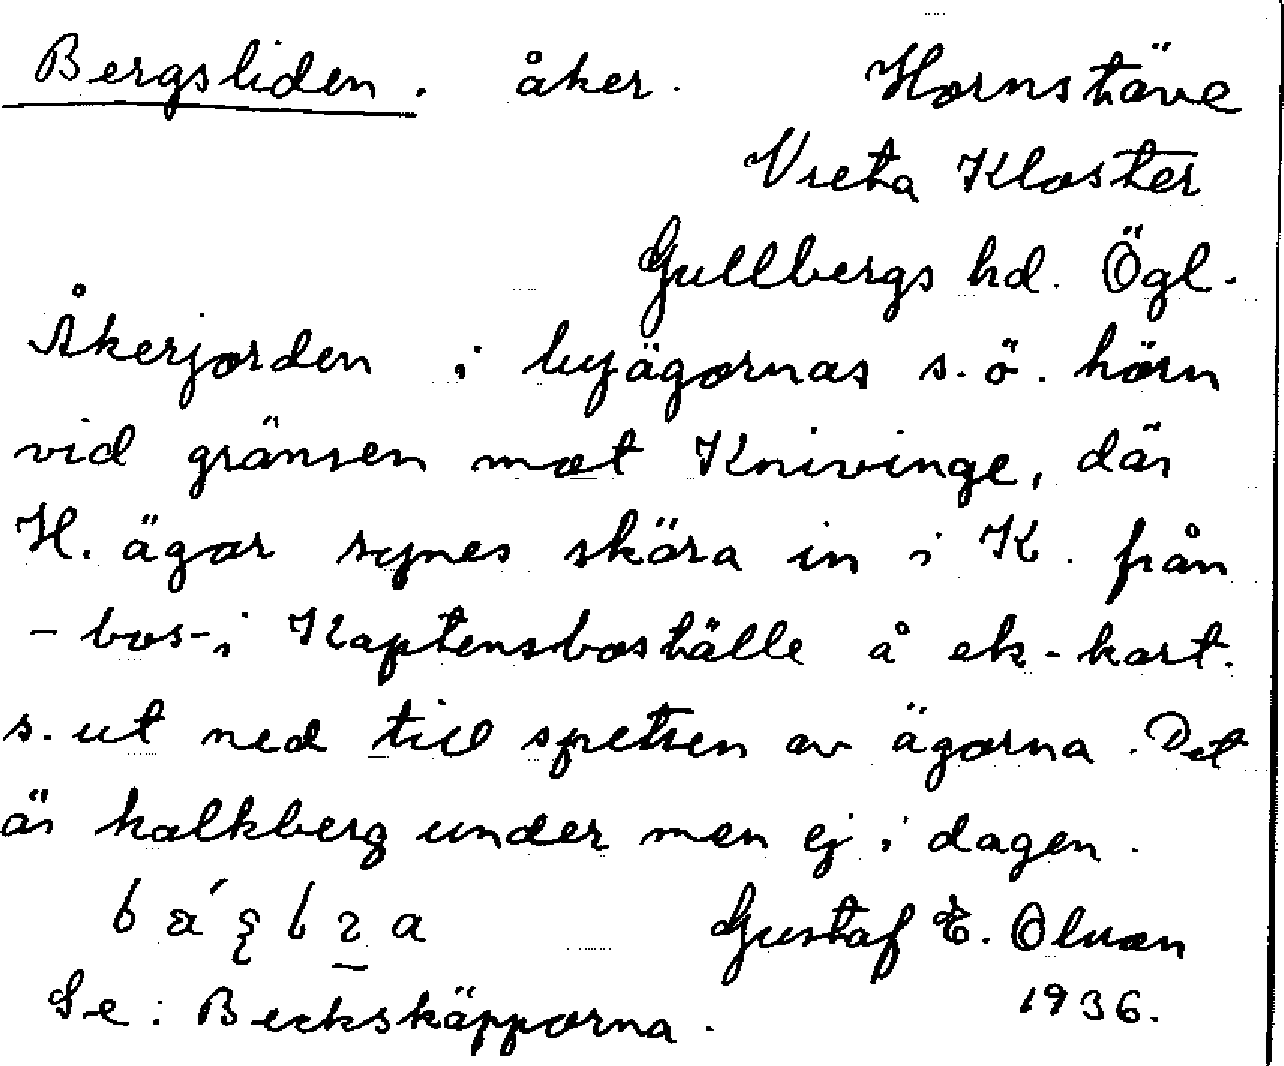 Bergsliden. åker. Hornstäve
Vreta Kloster
Gullbergs hd. Ögl.
Åkerjorden i byägornas s.ö. hörn
vid gränsen mot Knivinge, där
H. ägor synes skära in i K. från
- bos- i Kaptensboställe å ek-kart.
s. ut ned till spetsen av ägorna. Det
är kalkberg under men ej i dagen.
Gustaf E. Olson
Se: Beckskäpporna. 1936.